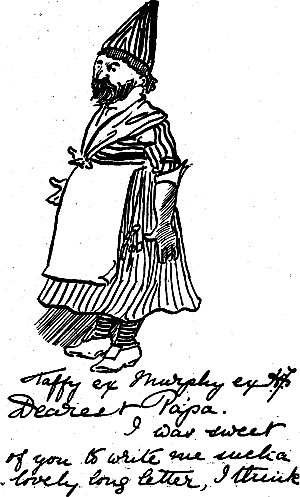 Taffy ex Murphy ex
Dearest Papa.
I was sweet
of you to write me such a
lovely long letter, I think